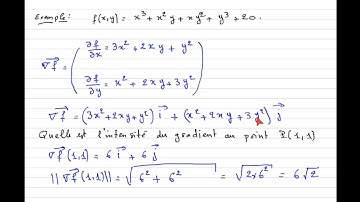 Exemple: f(x,y) = x³ + x² y + x y² + y³ + 20.
∇f = ( ∂f/∂x = 3x² + 2xy + y²
∂f/∂y = x² + 2xy + 3y² )
∇f = (3x² + 2xy + y²) i + (x² + 2xy + 3y²) j
Quelle est l'intensité du gradient au point I(1,1)
∇f (1,1) = 6 i + 6 j
||∇f (1,1)|| = √(6² + 6²) = √(2×6²) = 6√2